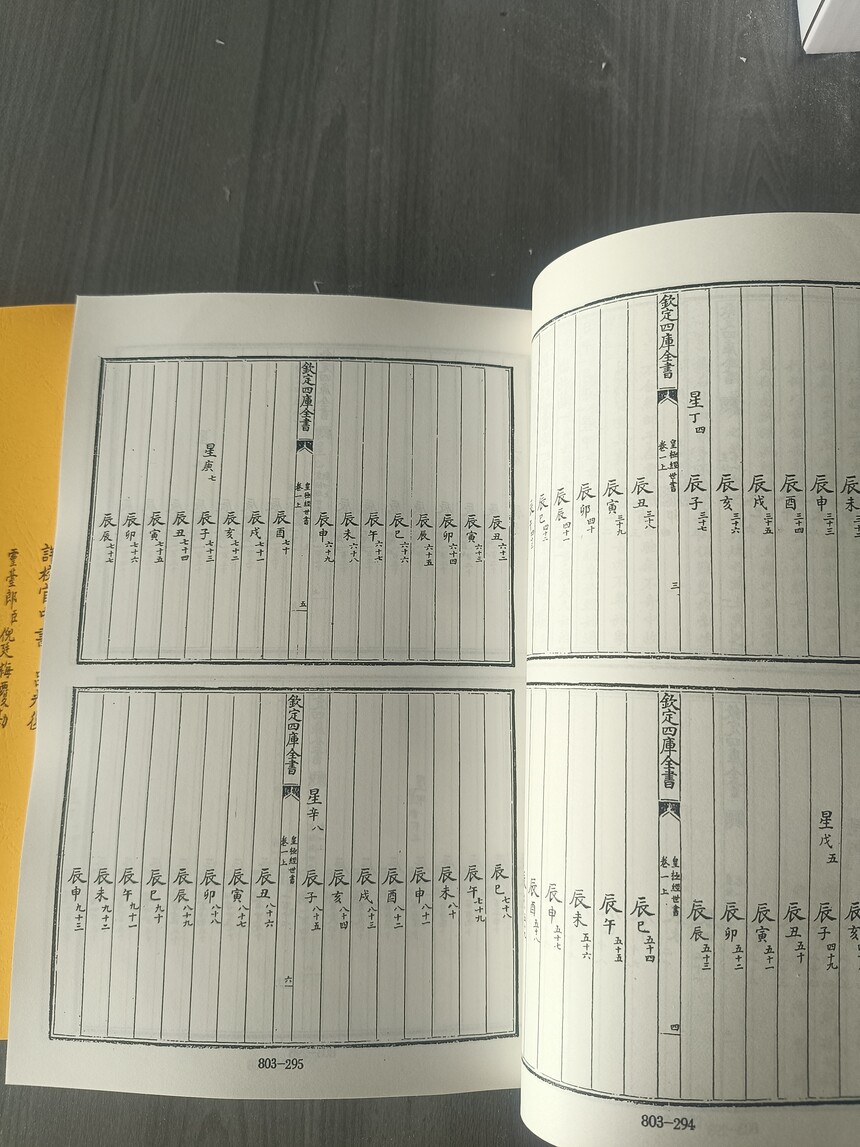 辰申三十三
辰酉三十四
辰戌三十五
辰亥三十六
星丁四 辰子三十七
欽定四庫全書 皇極經世書 卷一上 三
辰丑三十八
辰寅三十九
辰卯四十
辰辰四十一
辰巳四十二
星戊五 辰子四十九
辰丑五十
辰寅五十一
辰卯五十二
辰辰五十三
欽定四庫全書 皇極經世書 卷一上 四
辰巳五十四
辰午五十五
辰未五十六
辰申五十七
辰酉五十八
803-294
辰丑六十二
辰寅六十三
辰卯六十四
辰辰六十五
辰巳六十六
辰午六十七
辰未六十八
辰申六十九
欽定四庫全書 皇極經世書 卷一上 五
辰酉七十
辰戌七十一
辰亥七十二
星庚七 辰子七十三
辰丑七十四
辰寅七十五
辰卯七十六
辰辰七十七
辰巳七十八
辰午七十九
辰未八十
辰申八十一
辰酉八十二
辰戌八十三
辰亥八十四
星辛八 辰子八十五
欽定四庫全書 皇極經世書 卷一上 六
辰丑八十六
辰寅八十七
辰卯八十八
辰辰八十九
辰巳九十
辰午九十一
辰未九十二
辰申九十三
803-295
靈臺郎臣倪廷梅覆勘